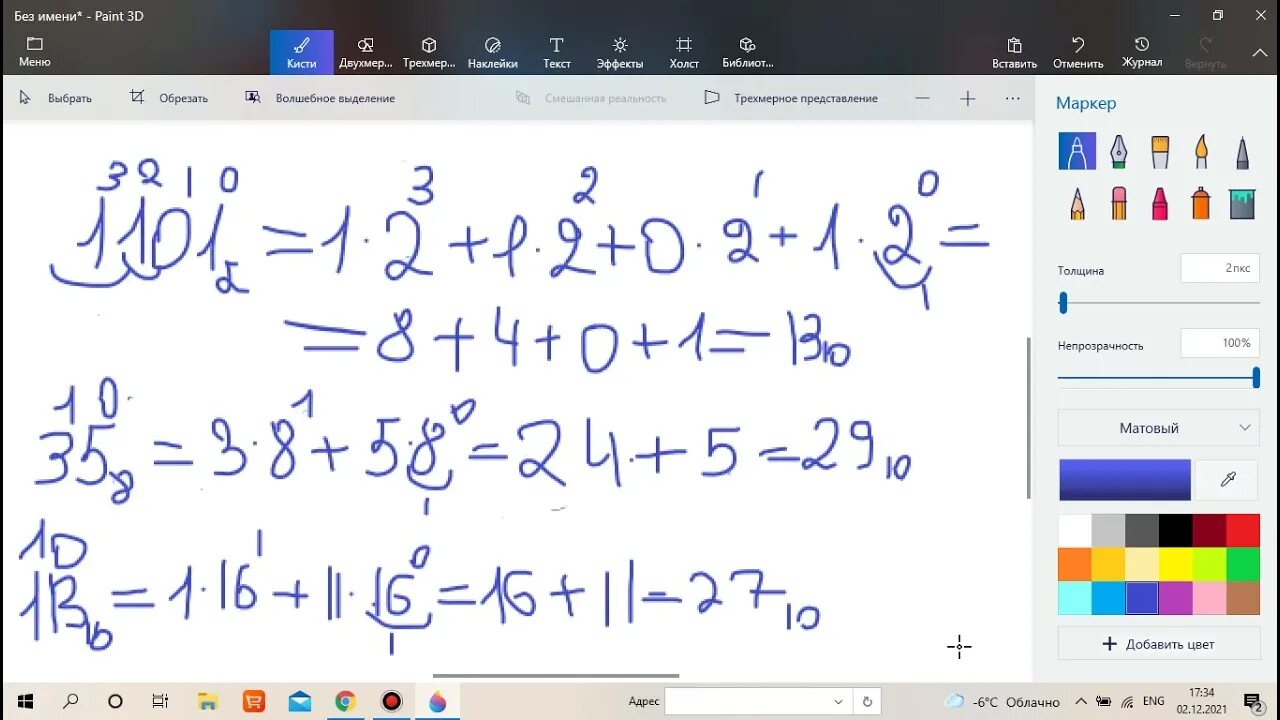 Без имени* - Paint 3D
Меню
Кисти Двухмер... Трехмер... Наклейки Текст Эффекты Холст Библиот... Вставить Отменить Журнал Вернуть
Выбрать Обрезать Волшебное выделение Смешанная реальность Трехмерное представление
Маркер
Толщина 2пкс
Непрозрачность 100%
Матовый
Добавить цвет
3 2 1 0
1101₂ = 1·2³ + 1·2² + 0·2¹ + 1·2⁰ =
1
= 8 + 4 + 0 + 1 = 13₁₀
1 0
35₈ = 3·8¹ + 5·8⁰ = 24 + 5 = 29₁₀
1
1 0
1B₁₆ = 1·16¹ + 11·16⁰ = 16 + 11 = 27₁₀
1
Адрес -6°C Облачно ENG 17:34
02.12.2021
2